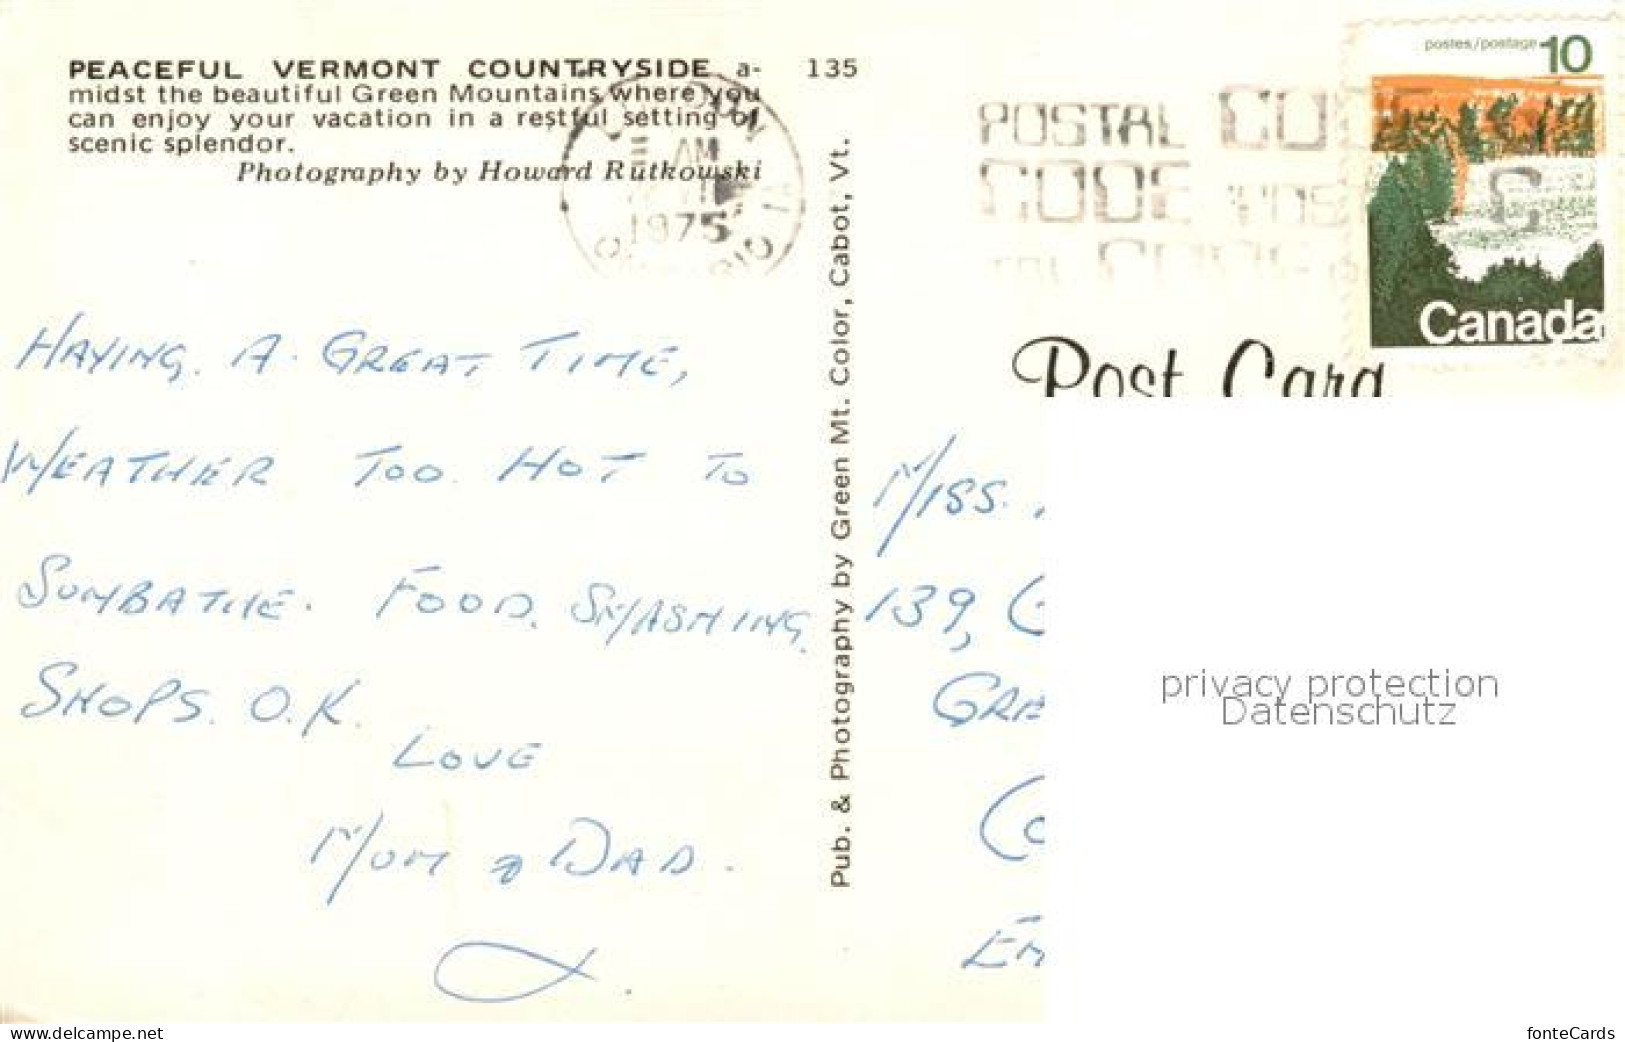 PEACEFUL VERMONT COUNTRYSIDE a-
midst the beautiful Green Mountains where you
can enjoy your vacation in a restful setting of
scenic splendor.
Photography by Howard Rutkowski
135
AM
1975
POSTAL CODE
CODE
postes/postage 10
Canada
Post Card
Pub. & Photography by Green Mt. Color, Cabot, Vt.
HAVING. A. GREAT TIME,
WEATHER TOO HOT TO
SUNBATHE. FOOD. SMASHING.
SHOPS. O.K.
LOVE
MUM & DAD.
MISS.
139,
GRE
CO
EN
privacy protection
Datenschutz
www.delcampe.net
fonteCards